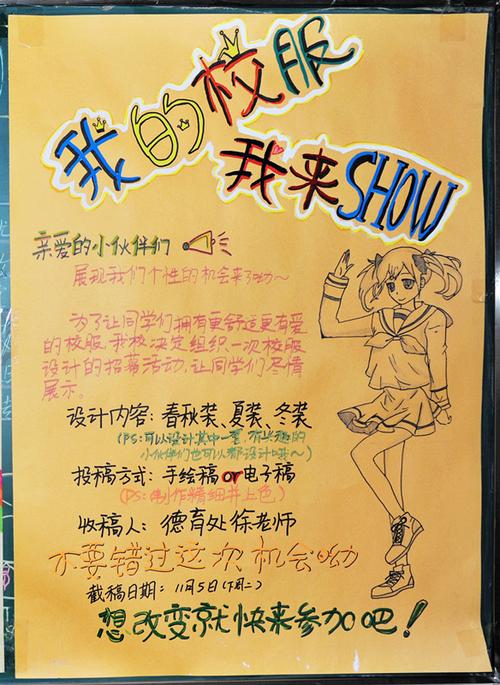 我的校服
我来SHOW
亲爱的小伙伴们
展现我们个性的机会来了呦～
为了让同学们拥有更舒适更有爱
的校服，我校决定组织一次校服
设计的招募活动，让同学们尽情
展示。
设计内容：春秋装、夏装、冬装
(PS:可以设计其中一套，有兴趣的
小伙伴们也可以都设计哦～)
投稿方式：手绘稿or电子稿
(PS:制作精细并上色)
收稿人：德育处徐老师
不要错过这次机会呦
截稿日期：11月5日(下周二)
想改变就快来参加吧！